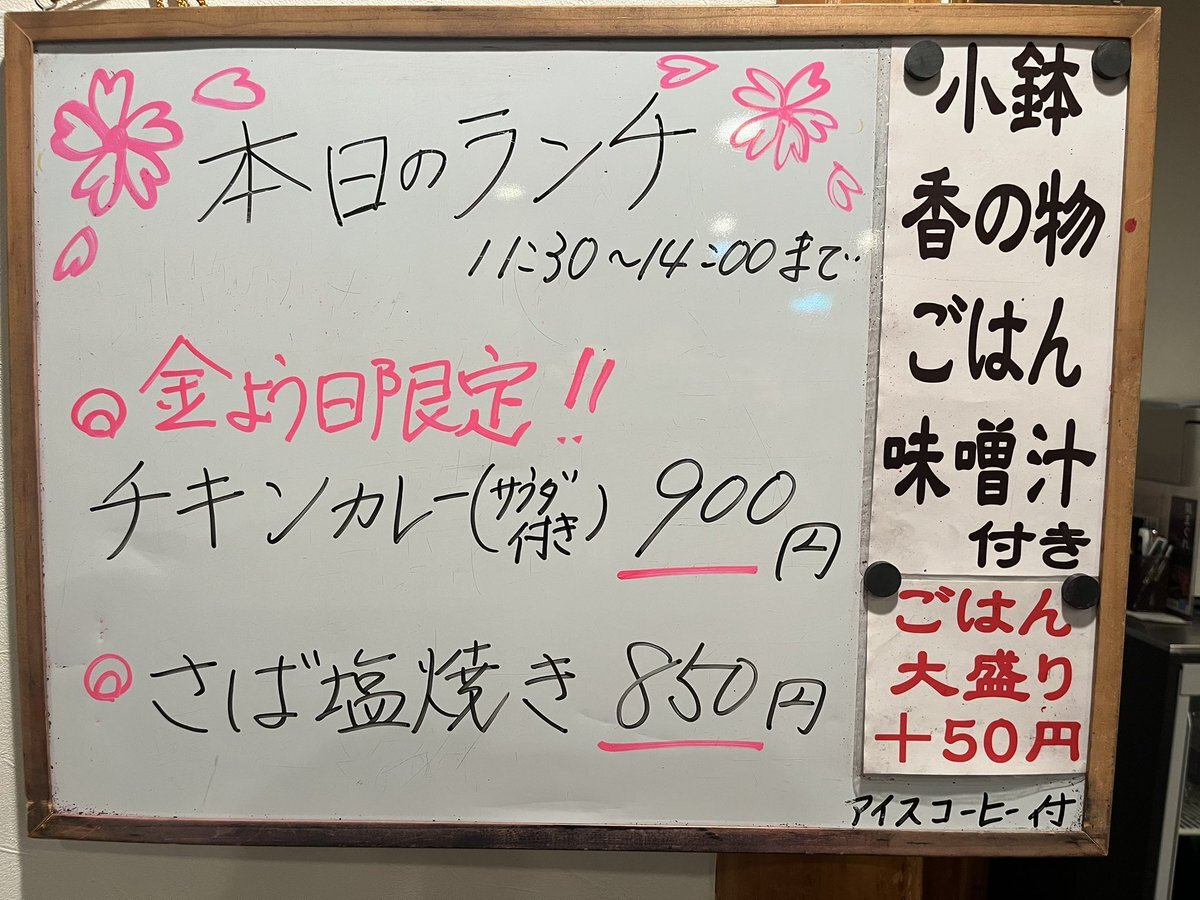 本日のランチ
11:30〜14:00まで
◎金よう日限定!!
チキンカレー(サラダ付き) 900円
◎さば塩焼き 850円
小鉢
香の物
ごはん
味噌汁
付き
ごはん
大盛り
+50円
アイスコーヒー付